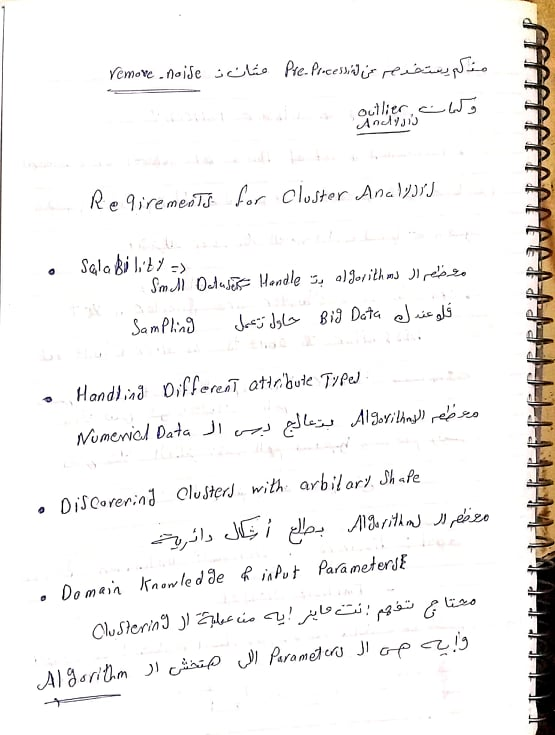 ممكم يستخدم من Pre-Processing عشان ن remove-noise
وكمان outlier Analysis
Reqirements for Cluster Analysis
• Scalability =>
معظم ال algorithms بت Handle Small Datasets
فلو عندك Big Data حاول تعمل Sampling
• Handling Different attribute Types
معظم ال Algorithms بتعالج بس ال Numerical Data
• Discovering Clusters with arbitary Shape
معظم ال Algorithms بطلع أشكال دائرية
• Domain Knowledge & input Parameters
محتاج تفهم انت عايز ايه من عملية ال Clustering
وايه هي ال Parameters الى هتخش ال Algorithm